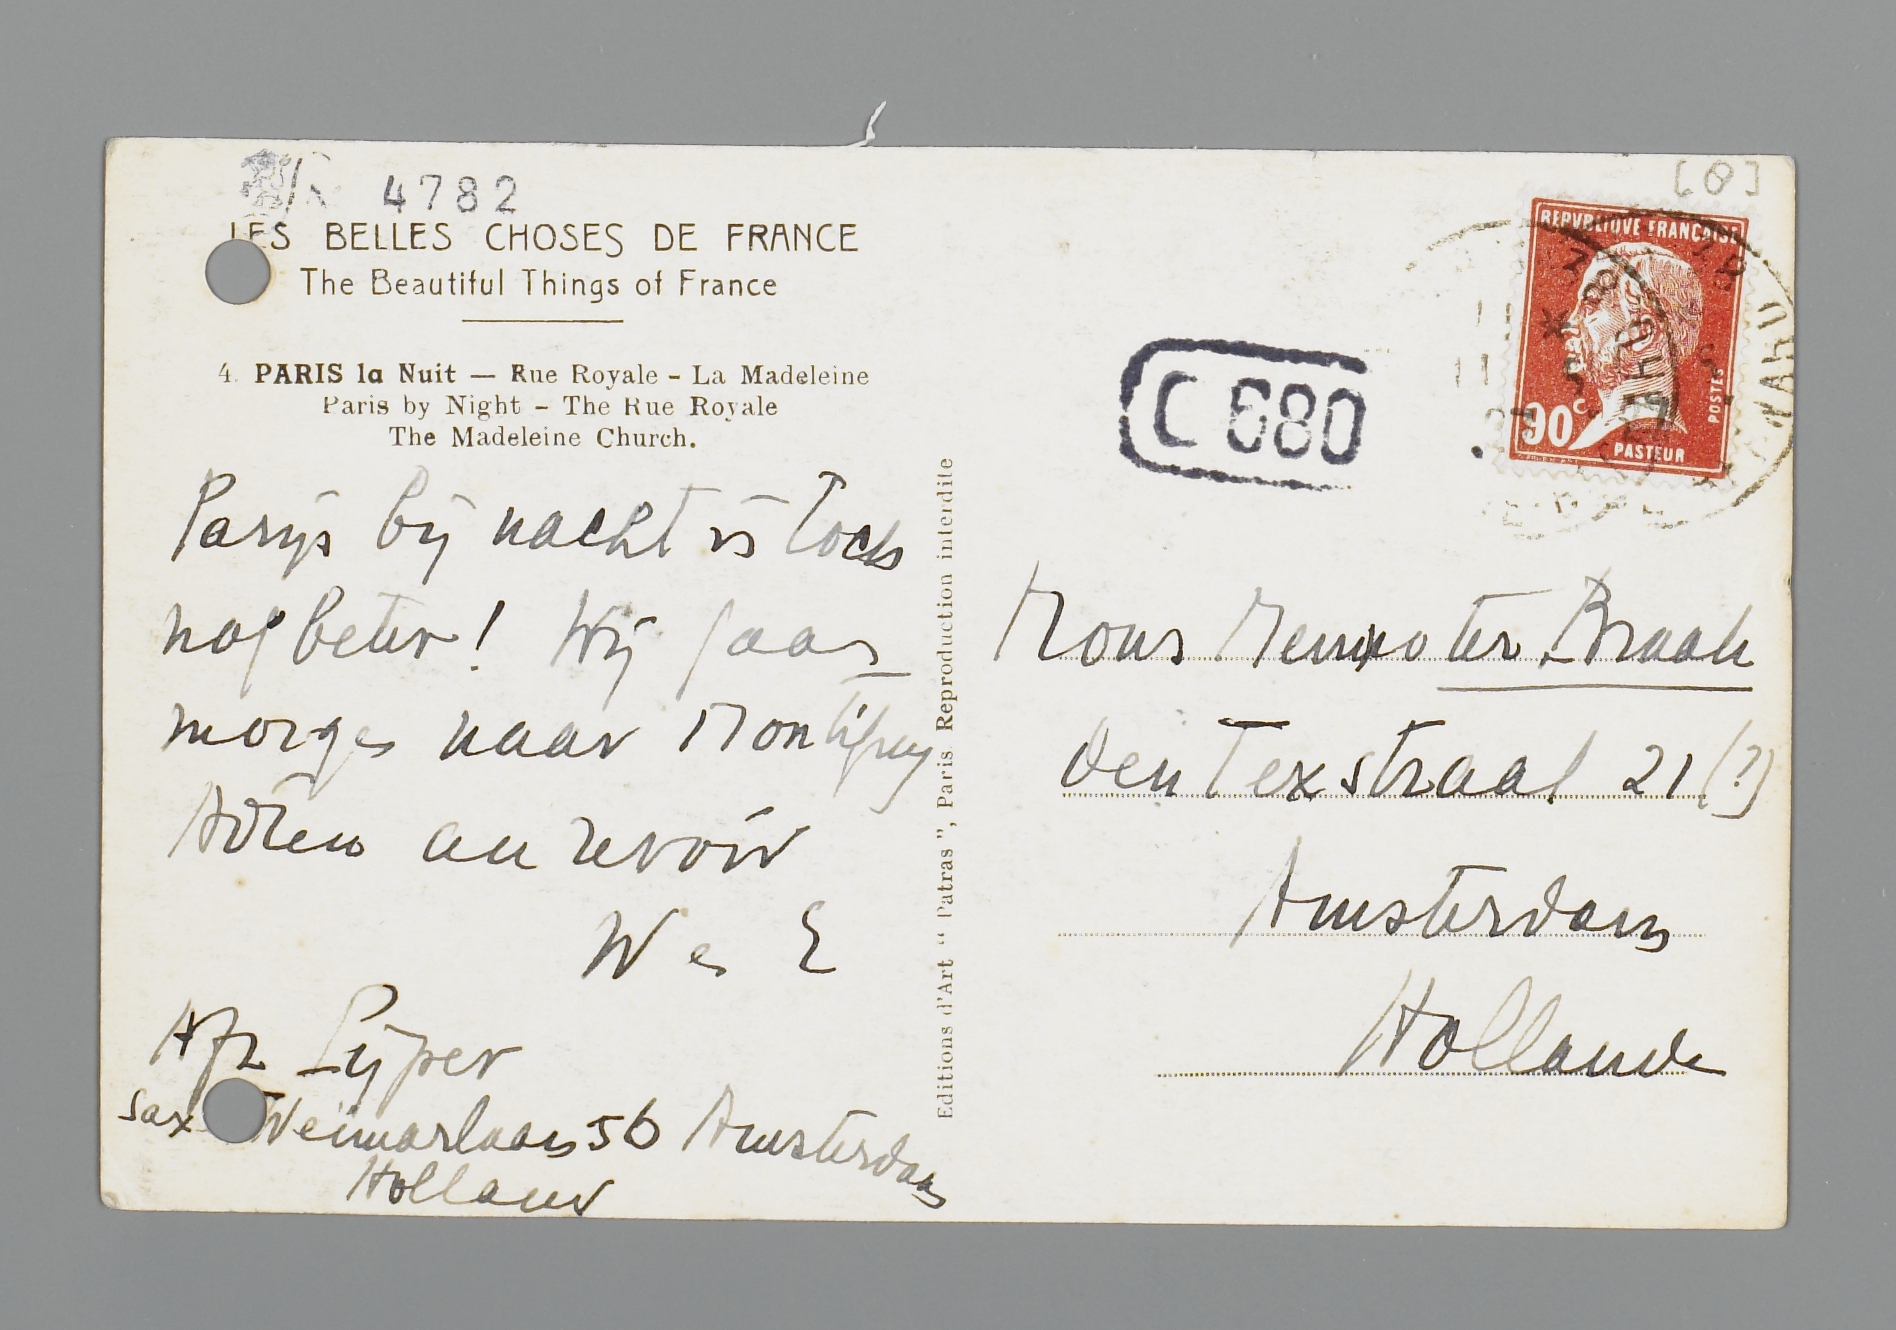 4782
LES BELLES CHOSES DE FRANCE
The Beautiful Things of France
4. PARIS la Nuit — Rue Royale - La Madeleine
Paris by Night - The Rue Royale
The Madeleine Church.
Parijs bij nacht is toch
nog beter! Wij gaan
morgen naar Montigny
Adieu au revoir
W en E
Afz Pijper
Sax Weimarlaan 56 Amsterdam
Holland
Editions d'Art "Patras", Paris. Reproduction interdite
[8]
REPVBLIQVE FRANÇAISE
POSTES
90c
PASTEUR
C 680
Mons Menno ter Braak
den Texstraat 21 (?)
Amsterdam
Hollande